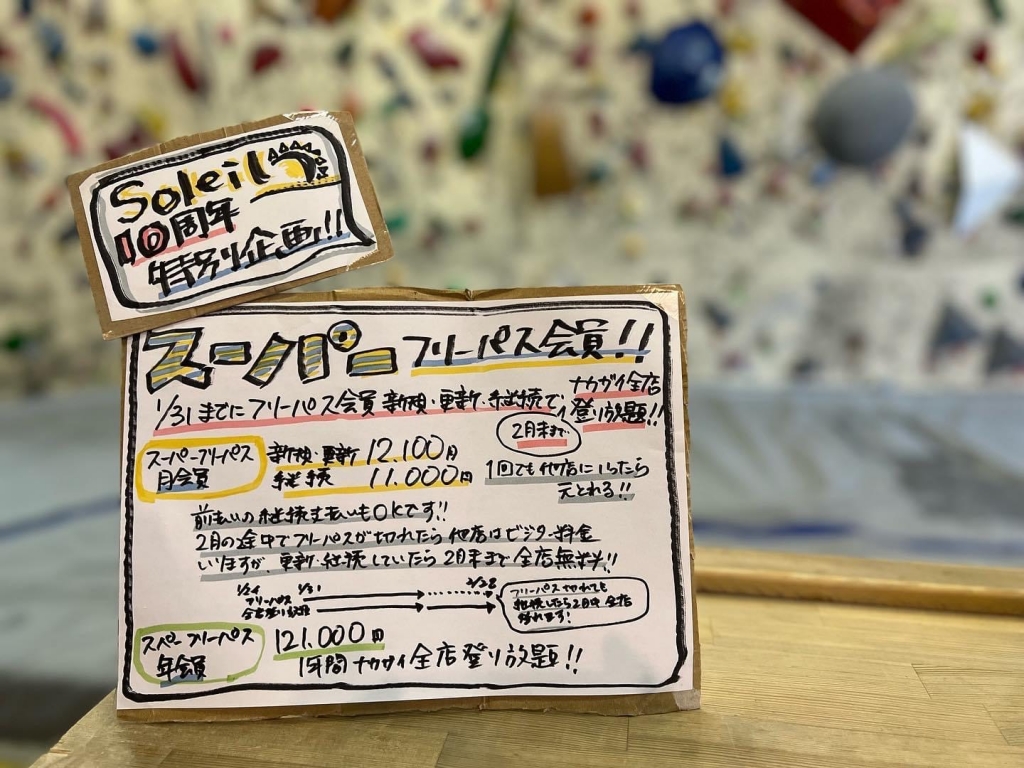 Soleil
10周年
特別企画!!
スーパーフリーパス会員!!
1/31までにフリーパス会員 新規・更新・継続で、ナカガイ全店
登り放題!!
2月末まで
スーパーフリーパス
月会員
新規・更新 12.100円
継続 11.000円
1回でも他店にいったら
元とれる!!
前払いの継続支払いもOKです!!
2月の途中でフリーパスが切れたら他店はビジター料金
いりますが、更新・継続していたら2月末まで全店無料!!
フリーパス
1/31
2/28
フリーパス切れても
継続したら2月中 全店
登れます!
スーパーフリーパス
年会員
121.000円
1年間ナカガイ全店登り放題!!